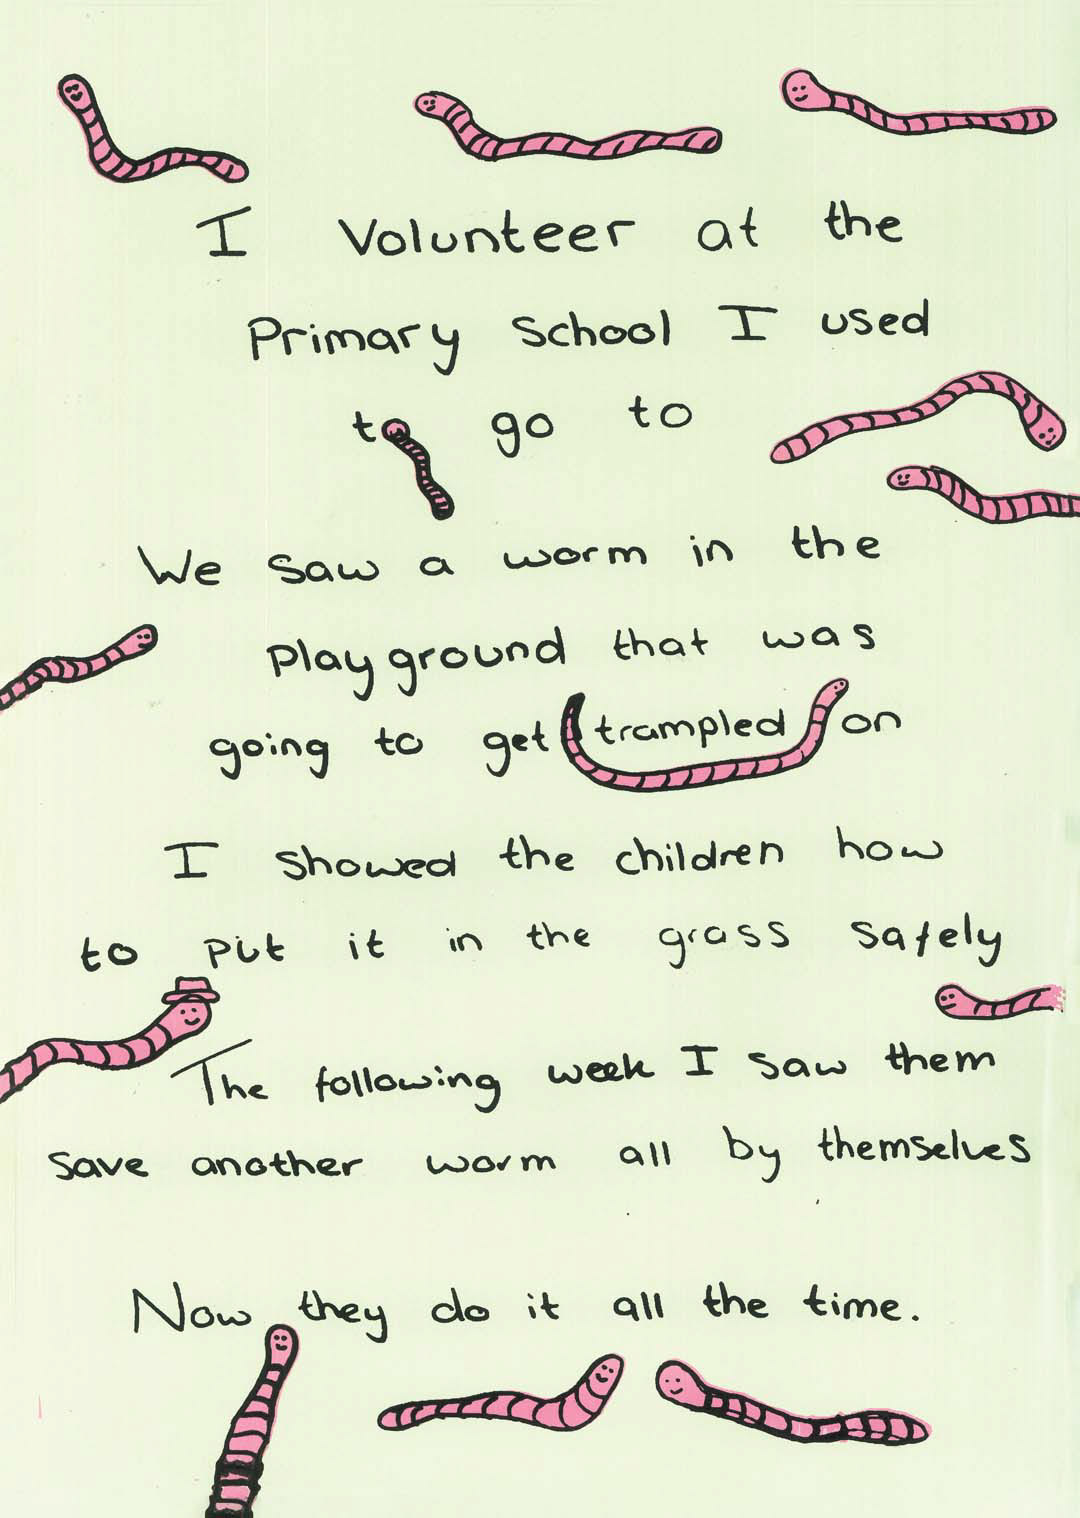 I Volunteer at the
Primary School I used
to go to
We saw a worm in the
playground that was
going to get trampled on
I showed the children how
to put it in the grass safely
The following week I saw them
save another worm all by themselves
Now they do it all the time.